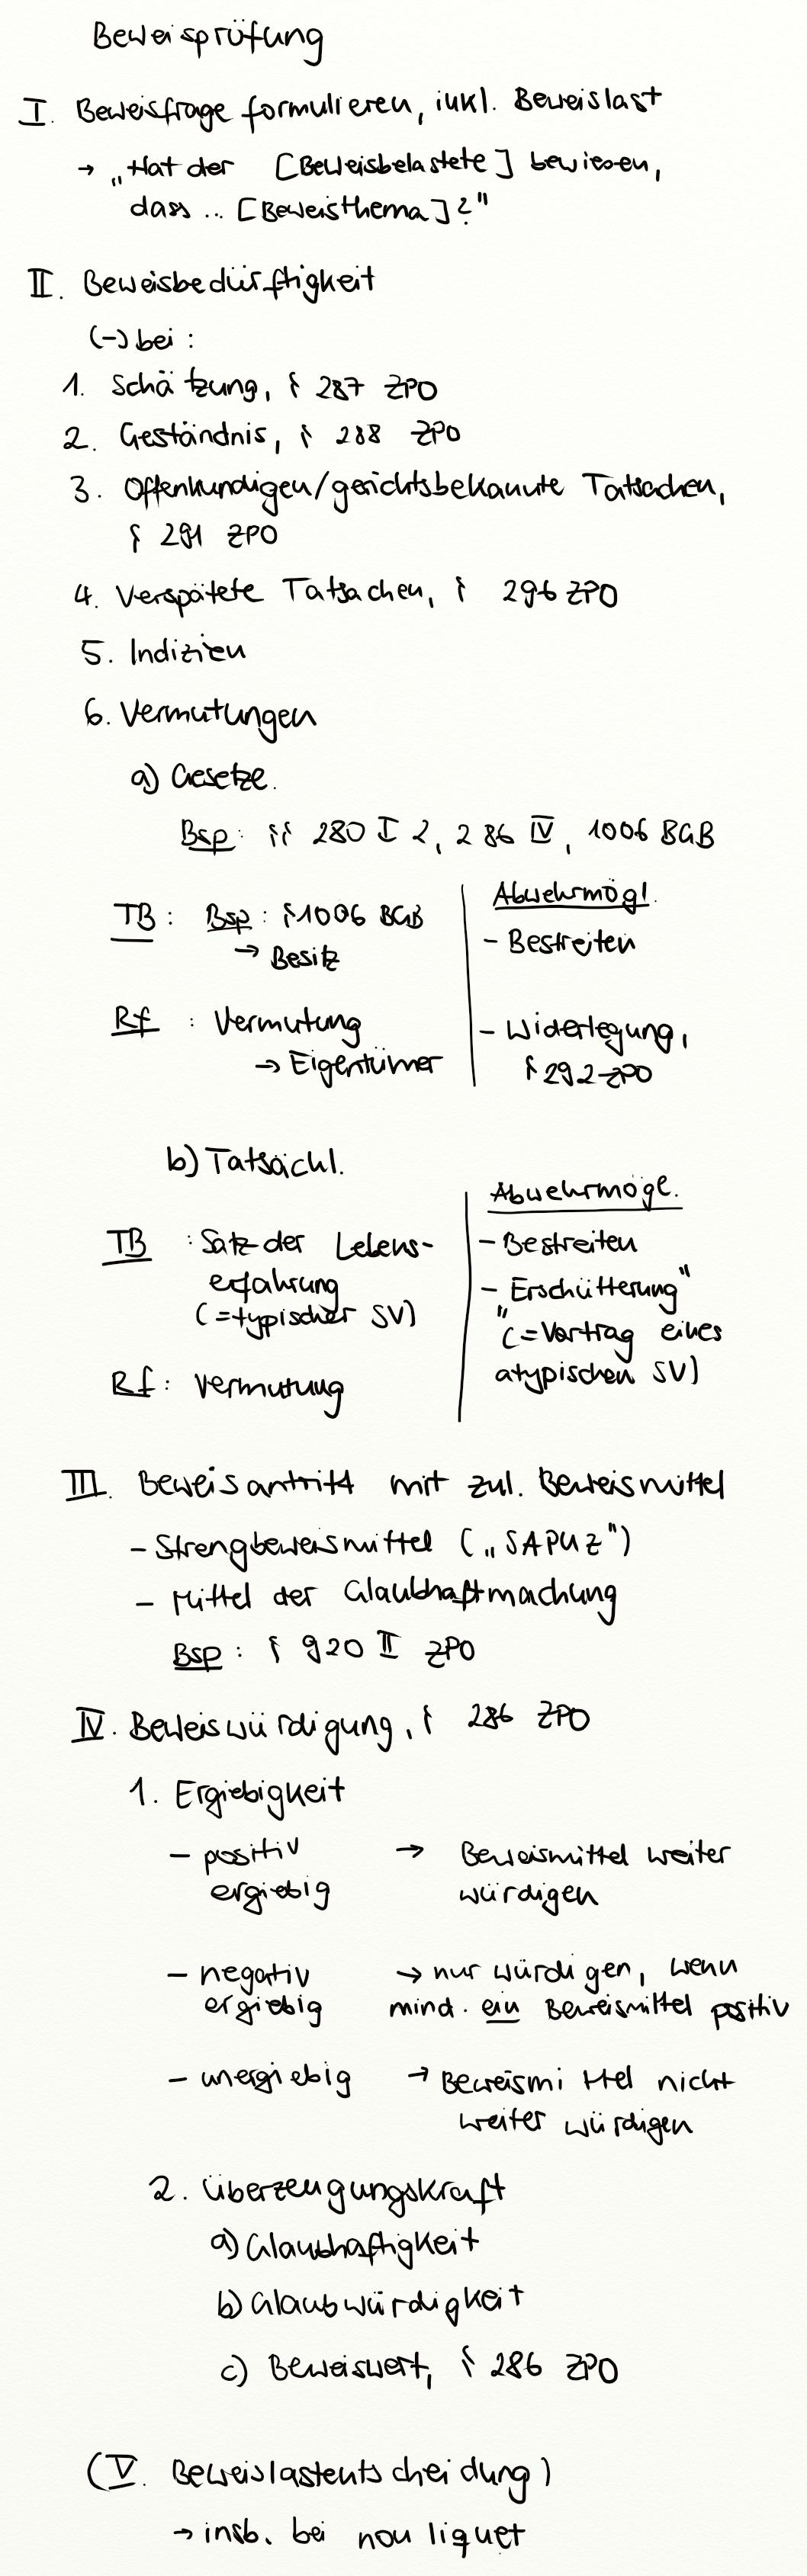 Beweisprüfung
I. Beweisfrage formulieren, inkl. Beweislast
→ „Hat der [Beweisbelastete] bewiesen,
dass .. [Beweisthema]?"
II. Beweisbedürftigkeit
(-) bei :
1. Schätzung, § 287 ZPO
2. Geständnis, § 288 ZPO
3. Offenkundigen/gerichtsbekannte Tatsachen,
§ 291 ZPO
4. Verspätete Tatsachen, § 296 ZPO
5. Indizien
6. Vermutungen
a) Gesetze.
Bsp: §§ 280 I 2, 286 IV, 1006 BGB
TB : Bsp : § 1006 BGB
→ Besitz
Rf : Vermutung
→ Eigentümer
Abwehrmögl.
- Bestreiten
- Widerlegung,
§ 292 ZPO
b) Tatsächl.
TB : Satz der Lebens-
erfahrung
(=typischer SV)
Rf : Vermutung
Abwehrmögl.
- Bestreiten
- „Erschütterung"
(=Vortrag eines
atypischen SV)
III. Beweisantritt mit zul. Beweismittel
- Strengbeweismittel („SAPUZ")
- Mittel der Glaubhaftmachung
Bsp : § 920 II ZPO
IV. Beweiswürdigung, § 286 ZPO
1. Ergiebigkeit
- positiv → Beweismittel weiter
ergiebig würdigen
- negativ → nur würdigen, wenn
ergiebig mind. ein Beweismittel positiv
- unergiebig → Beweismittel nicht
weiter würdigen
2. Überzeugungskraft
a) Glaubhaftigkeit
b) Glaubwürdigkeit
c) Beweiswert, § 286 ZPO
(V. Beweislastentscheidung)
→ insb. bei non liquet